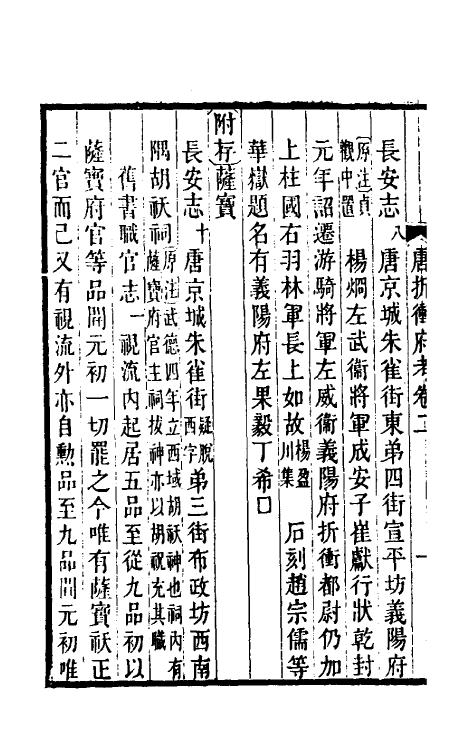 唐折衝府考卷二 一
長安志八唐京城朱雀街東第四街宣平坊義陽府
原注貞觀中置 楊烱左武衞將軍成安子崔獻行狀乾封
元年詔遷游騎將軍左威衞義陽府折衝都尉仍加
上柱國右羽林軍長上如故楊盈川集 石刻趙宗儒等
華嶽題名有義陽府左果毅丁希□
附存薩寶
長安志十唐京城朱雀街疑脫西字弟三街布政坊西南
隅胡祅祠原注武德四年立西域胡祅神也祠内有薩寶府官主祠拔神亦以胡祝充其職
舊書職官志一視流内起居五品至從九品初以
薩寶府官等品開元初一切罷之今唯有薩寶祅正
二官而已又有視流外亦自勲品至九品開元初唯